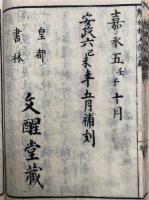 嘉永五壬子十月
安政六己未年五月補刻
皇都
書林
文醒堂蔵